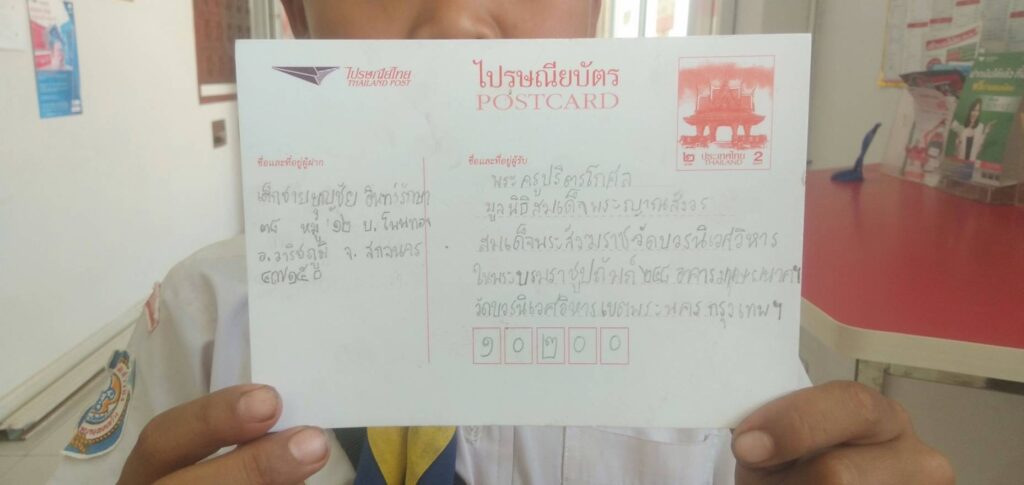 ไปรษณีย์ไทย
THAILAND POST
ไปรษณียบัตร
POSTCARD
๒ ประเทศไทย 2
THAILAND
ชื่อและที่อยู่ผู้ฝาก
เด็กชายบุญชัย อินทร์รักษา
๓๘ หมู่ ๑๒ บ.โนนทอง
อ.วาริชภูมิ จ. สกลนคร
๔๗๑๕๐
ชื่อและที่อยู่ผู้รับ
พระครูปริตรโกศล
มูลนิธิสมเด็จพระญาณสังวร
สมเด็จพระสังฆราช วัดบวรนิเวศวิหาร
ในพระบรมราชูปถัมภ์ ๒๔๘ อาคาร
วัดบวรนิเวศวิหาร เขตพระนคร กรุงเทพฯ
๑๐๒๐๐